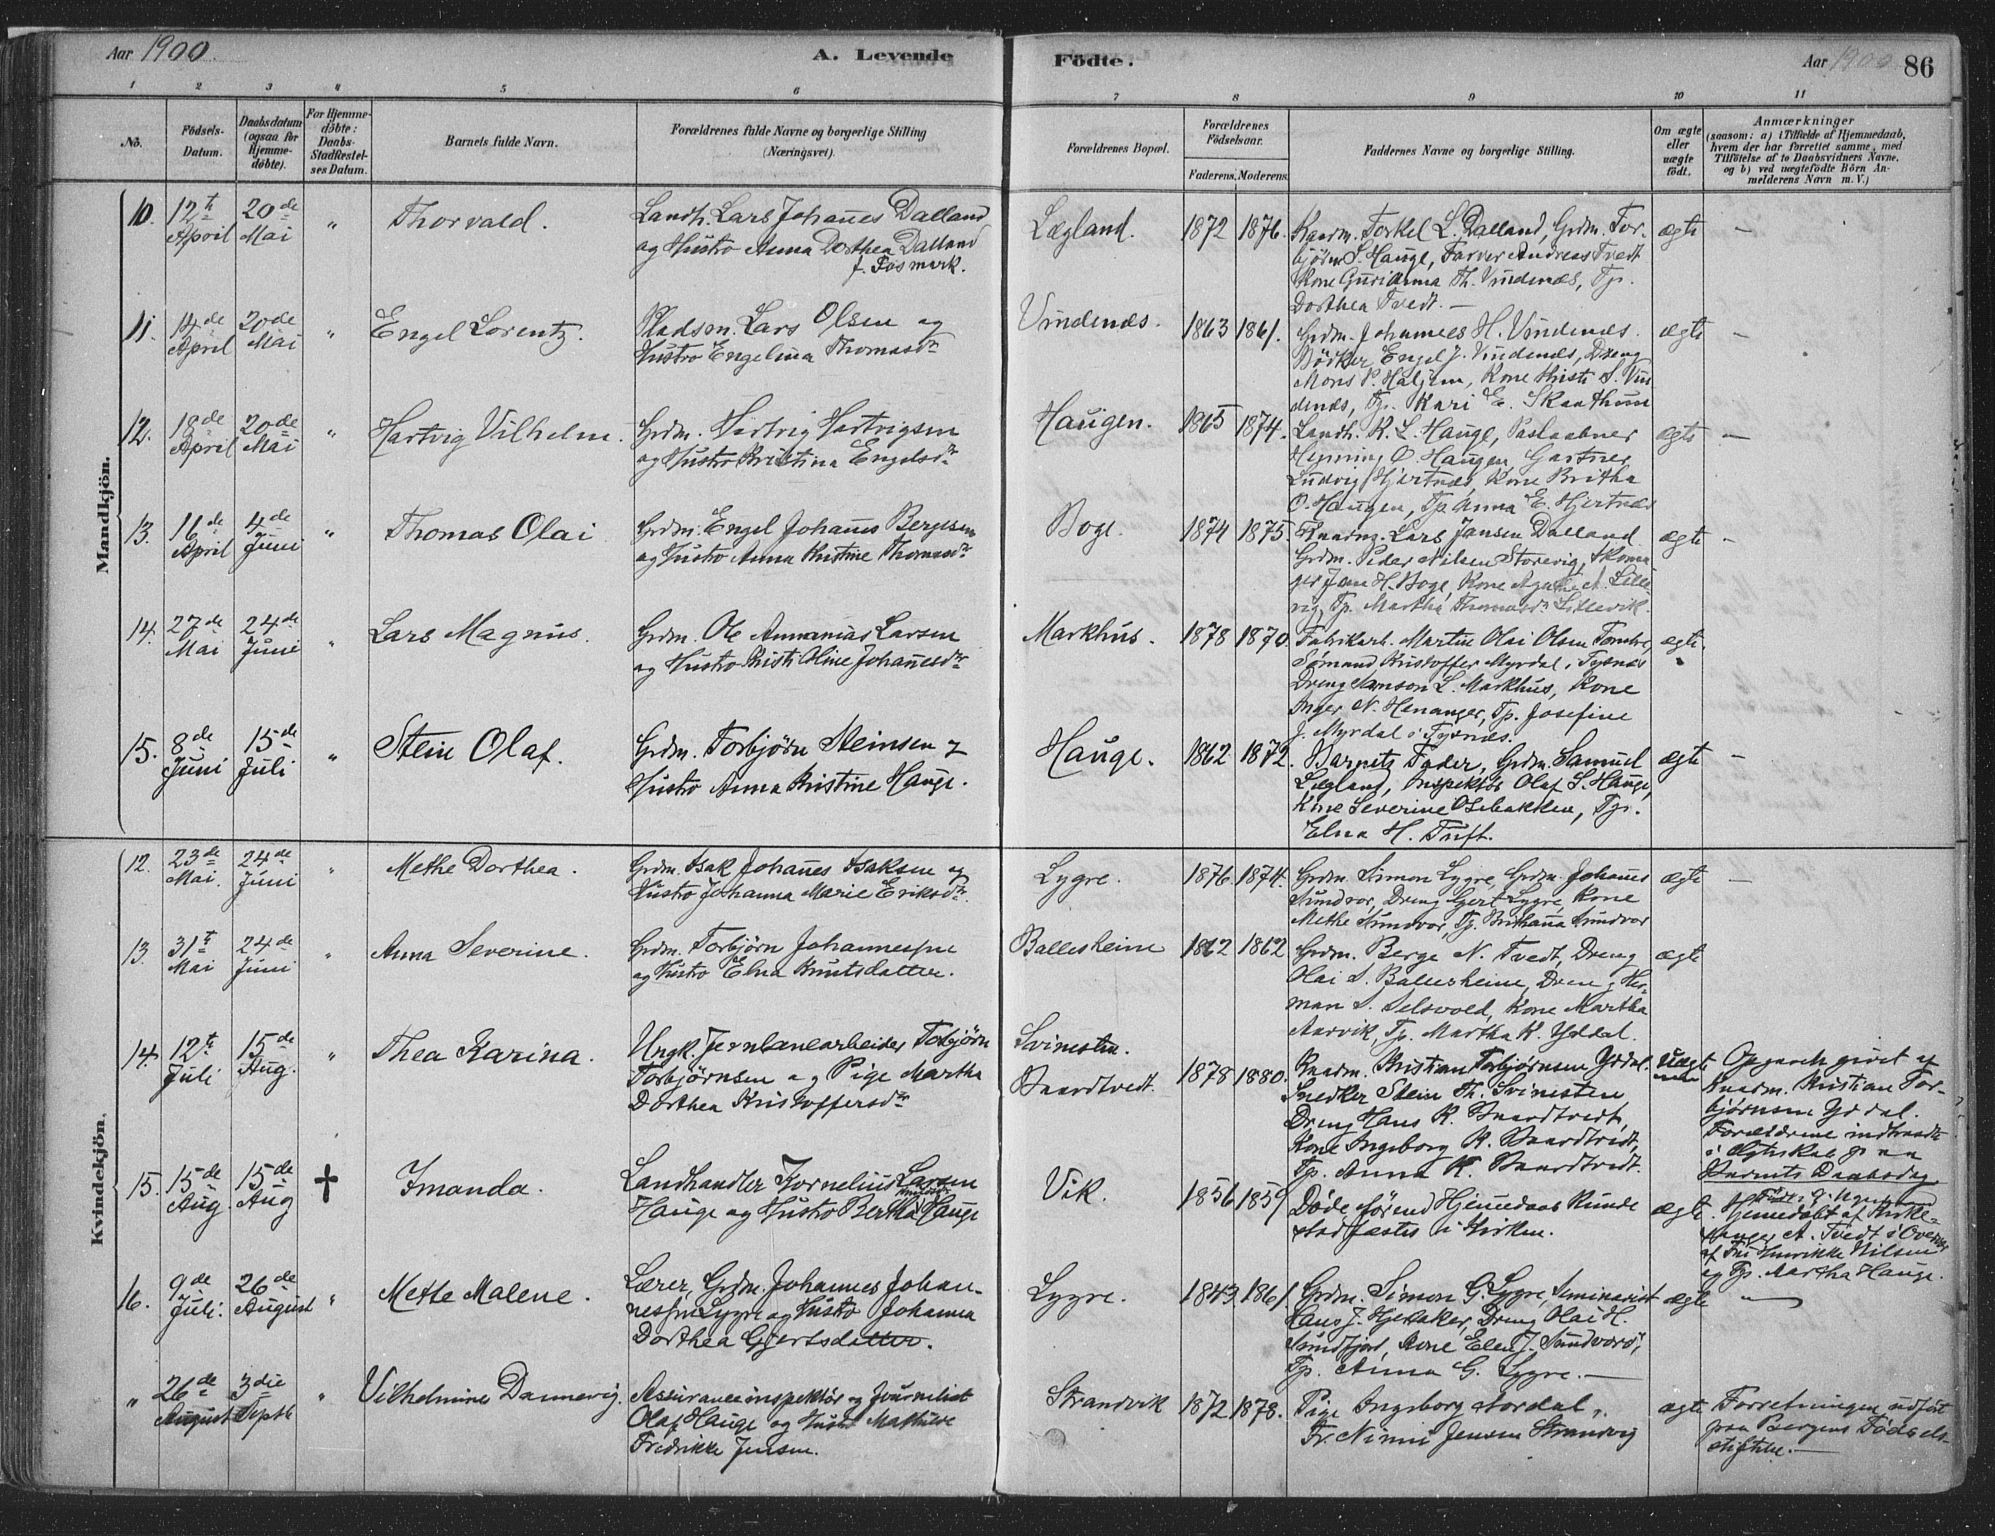 Aar 1900. A. Levende Födte. Aar 1900 86
1 2 3 4 5 6 7 8 9 10 11
No. Födsels-Datum. Daabsdatum (ogsaa for Hjemmedöbte). For Hjemmedöbte: Daabs-Stadfæstelses Datum. Barnets fulde Navn. Forældrenes fulde Navne og borgerlige Stilling (Næringsvei). Forældrenes Bopæl. Forældrenes Födselsaar. Faderens. Moderens. Faddernes Navne og borgerlige Stilling. Om ægte eller uægte födt. Anmærkninger (saasom: a) i Tilfælde af Hjemmedaab, hvem der har forrettet samme, med Tilföielse af to Daabsvidners Navne, og b) ved uægtefödte Börn Anmelderens Navn m. V.)
Mandkjön.
10. 12t April 20de Mai " Thorvald. Landh. Lars Johañes Dalland
og Hustro Anna Dorthea Dalland
f. Fosmark.
Lægland. 1872 1876. Kaarm. Torkel L. Dalland, Grdm. Tor-
bjørn S. Hauge, Farver Andreas Tvedt
Kone Gurianna Th. Vindenæs, Tp.
Dorthea Tvedt. —
ægte —
11. 14de April 20de Mai " Engel Lorentz. Pladsm. Lars Olsen og
Hustro Engelina Thomasdr
Vindenæs. 1863 1861. Grdm. Johannes H. Vindenæs.
Bödker Engel J. Vindenæs, Dreng
Mons P. Haljem, Kone Kristi S. Vin
denæs, Tp. Kari E.
ægte —
12. 18de April 20de Mai " Hartvig Vilhelm. Grdm. Hartvig Hartvigsen
og Hustro Kristina Engelsdr
Haugen. 1865 1874. Landh. K. L. Hauge,
Henning O. Haugen, Gartner
Ludvig Hjertnæs, Kone Britha
O. Haugen, Tp Anna E. Hjertnæs
ægte —
13. 16de April 4de Juni " Thomas Olai Grdm. Engel Johañes Bergesen
og Hustro Anna Kristine Thomasdr
Boge. 1874 1875. Lars Jansen Dalland.
Grdm. Peder Nilsen Storevig, Skoma
ger Jan H. Boge, Kone A. Lille
vig, Tp. Martha Thomasdr Lillevik.
ægte —
14. 27de Mai 24de Juni " Lars Magnus. Grdm. Ole Annanias Larsen
og Hustro Kristi Oline Johañesdr
Markhus. 1878 1870. Fabrikarb. Martin Olai Olsen
Sømand Kristoffer Myrdal i Tysnæs
Dreng Samson L. Markhus, Kone
Inger N. Henanger, Tp. Josefine
J. Myrdal i Tysnæs.
ægte "
15. 8de Juni 15de Juli " Stein Olaf. Grdm. Torbjørn Steinsen og
Hustro Anna Kristine Hauge.
Hauge. 1862 1872. Barnets Fader, Grdm. Samuel
Lægland, Inspektør Olaf S. Hauge,
Kone Severine Osebakken, Tp.
Elna H. Tuft.
ægte —
Kvindekjön.
12. 23de Mai. 24de Juni " Methe Dorthea. Grdm. Isak Johañes Isaksen og
Hustro Johanna Marie Eriksdr.
Lygre. 1876 1874. Grdm. Simon Lygre, Grdm. Johañes
Sundvor, Dreng Gjert Lygre, Kone
Methe Sundvor, Tp. Sundvor
ægte —
13. 31t Mai 24de Juni " Anna Severine. Grdm. Torbjørn Johannessen
og Hustro Elna Knutsdatter.
Ballesheim 1862 1862 Grdm. Berge N. Tvedt, Dreng
Olai S. Ballesheim, Dreng Her-
man S. Selsvold, Kone Martha
Aarvik, Tp. Martha K. Yddal.
ægte
14. 12t Juli 15de Aug. " Thea Karina. Ungk. Jernbanearbeider Torbjørn
Torbjørnsen og Pige Martha
Dorthea Kristoffersdr
Svinesten.
Baardtvedt. 1878 1880. Kaarm. Kristian Torbjørnsen Yddal.
Snedker Stein Th. Svinesten,
Dreng Hans K. Baardtvedt,
Kone Ingeborg K. Baardtvedt,
Tp. Anna K. Baardtvedt.
Uægte
Opgaven givet af
Kaarm. Kristian Tor-
bjørnsen Yddal.
Forældrene indtraadte
i Ægteskab paa
Barnets Daabsdag
15. 15de Aug. 15de Aug ✝ Imanda. Landhandler Kornelius Larsen
Hauge og Hustro Bertha Hauge
Vik. 1856 1859 Døde førend Hjemedaab Kunde
stadfæstes i Kirken.
ægte. Hjemedøbt af Kirke-
sanger A. Tvedt i Overvær
af Henrikke Nilsen
og Tp. Martha Hauge.
16. 9de Juli. 26de August " Mette Malene. Lærer, Grdm. Johannes Johan-
nessen Lygre og Hustro Johanna
Dorthea Gjertsdatter.
Lygre. 1843 1861. Grdm. Simon G. Lygre, Seminarist
Hans J. Hjelsaker, Dreng Olai H.
Sundfjord, Kone Elen J. Sundvor,
Tp. Anna G. Lygre. —
ægte "
" 26de August 3die Septb " Vilhelmine Dannevig. Assuranceinspektør og Journalist
Olaf Hauge og Hustro Mathilde
Fredrikke Jensen.
Strandvik 1872 1878. Pige Ingeborg Nordal,
Fr. Nimi Jensen Strandvig
ægte Forretningen udført
paa Bergens Födsels-
stiftelse. —